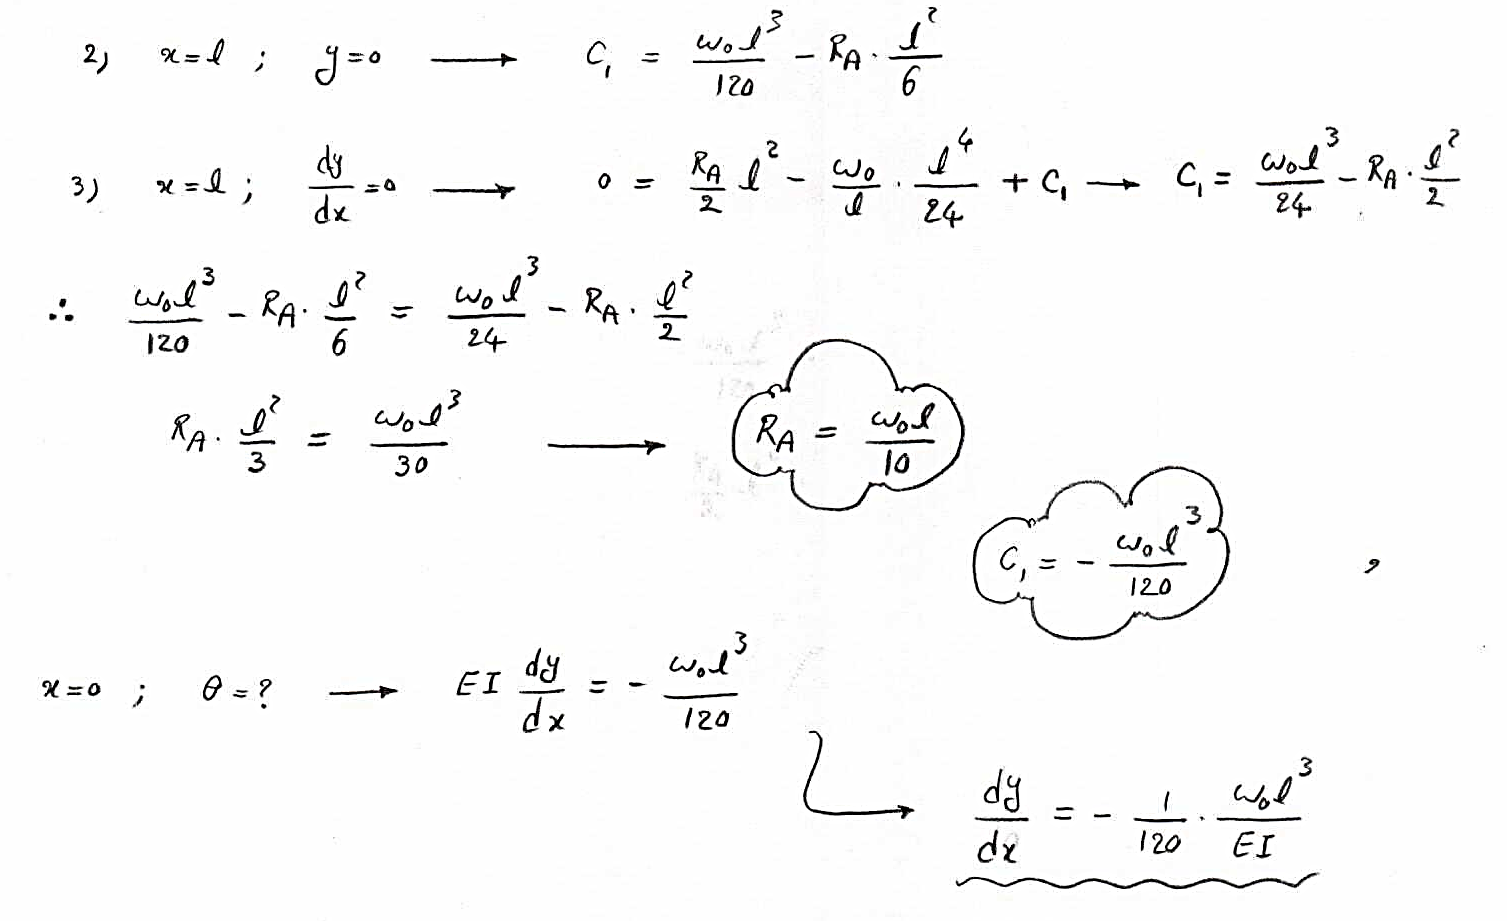 2) x=l ; y=0 ⟶ C₁ = ω₀l³/120 − R_A · l²/6
3) x=l ; dy/dx=0 ⟶ 0 = R_A/2 l² − ω₀/l · l⁴/24 + C₁ ⟶ C₁ = ω₀l³/24 − R_A · l²/2
∴ ω₀l³/120 − R_A · l²/6 = ω₀l³/24 − R_A · l²/2
R_A · l²/3 = ω₀l³/30 ⟶ R_A = ω₀l/10
C₁ = − ω₀l³/120 ,
x=0 ; θ=? ⟶ EI dy/dx = − ω₀l³/120
⟶ dy/dx = − 1/120 · ω₀l³/EI